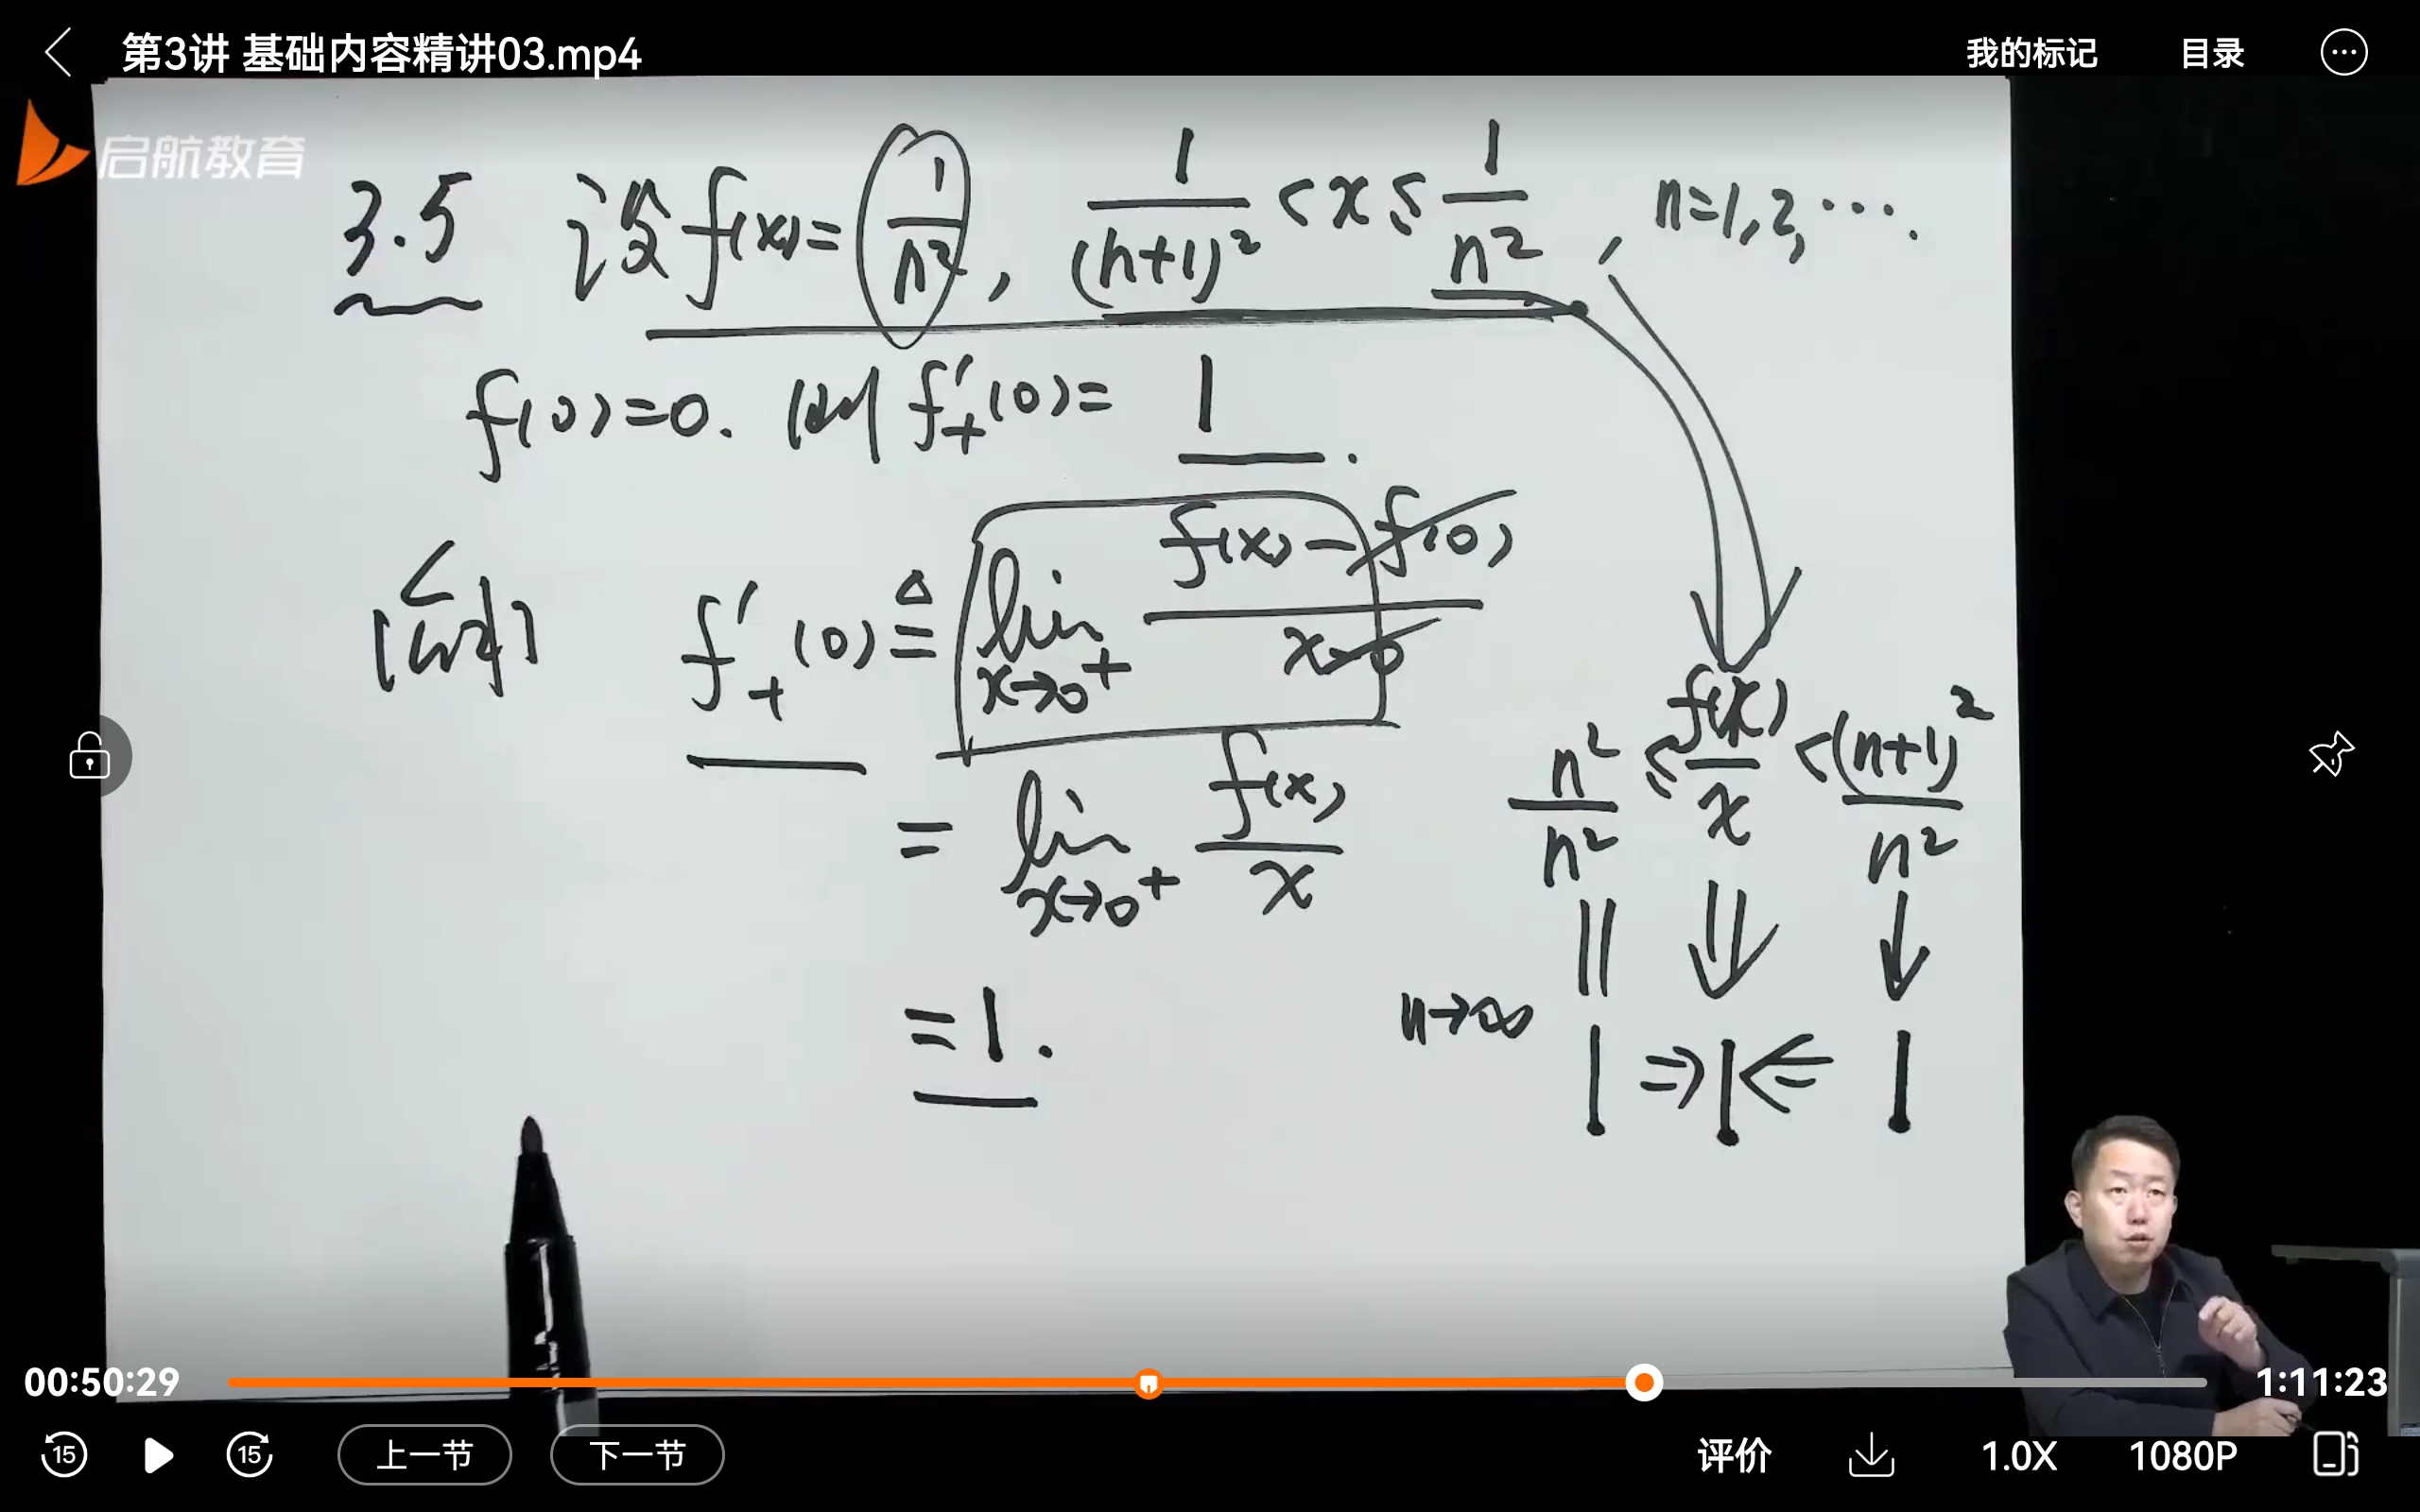 第3讲 基础内容精讲03.mp4
我的标记
目录
启航教育
3.5 设f(x)=1/n², 1/(n+1)²<x≤1/n², n=1,2,….
f(0)=0. 则f'₊(0)= 1.
[分析] f'₊(0)≜lim x→0⁺ (f(x)-f(0))/(x-0)
=lim x→0⁺ f(x)/x
n²/n²≤f(x)/x<(n+1)²/n²
=1.
n→∞ 1⇒1⇐1
00:50:29
1:11:23
15
15
上一节
下一节
评价
1.0X
1080P